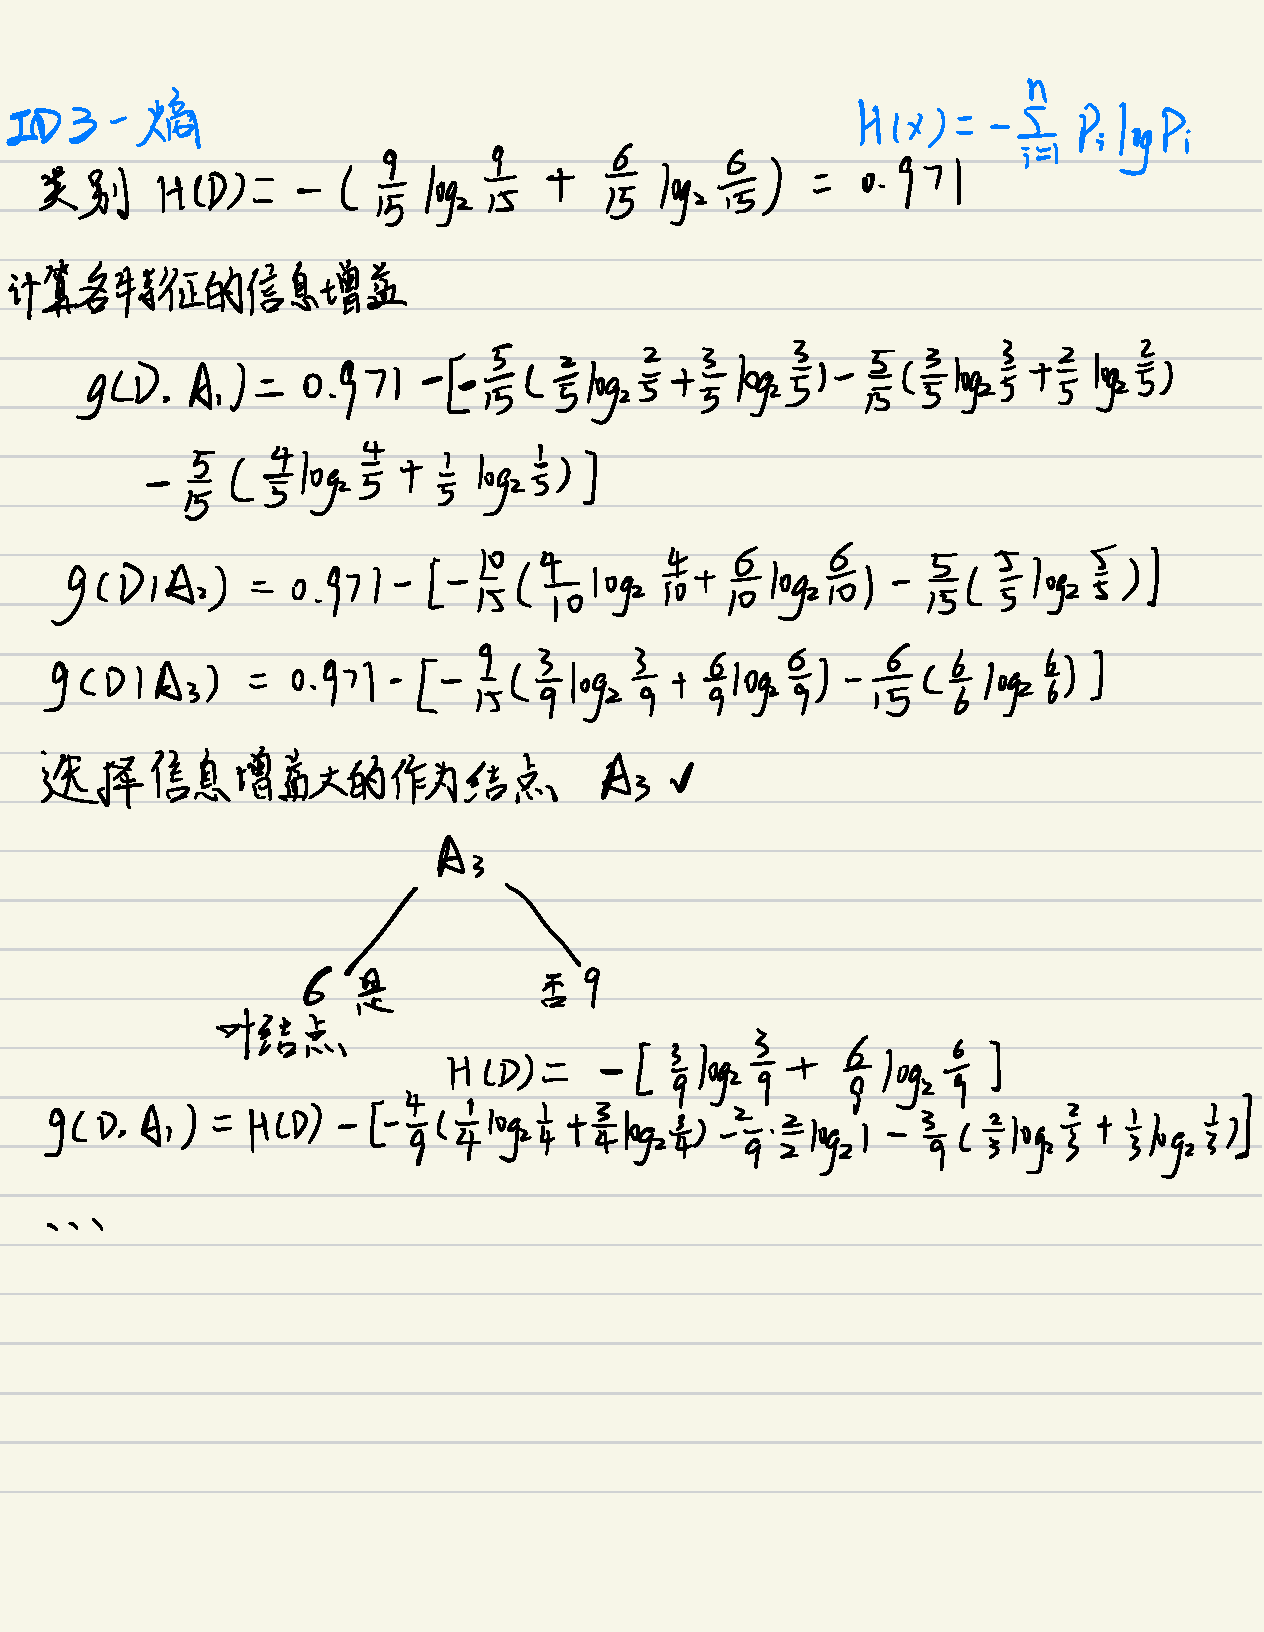 ID3-熵
H(x) = -∑_{i=1}^{n} Pi log Pi
类别 H(D) = -(9/15 log₂ 9/15 + 6/15 log₂ 6/15) = 0.971
计算各特征的信息增益
g(D. A₁) = 0.971 - [-5/15(2/5 log₂ 2/5 + 3/5 log₂ 3/5) - 5/15(3/5 log₂ 3/5 + 2/5 log₂ 2/5)
- 5/15(4/5 log₂ 4/5 + 1/5 log₂ 1/5)]
g(D|A₂) = 0.971 - [-10/15(4/10 log₂ 4/10 + 6/10 log₂ 6/10) - 5/15(5/5 log₂ 5/5)]
g(D|A₃) = 0.971 - [-9/15(3/9 log₂ 3/9 + 6/9 log₂ 6/9) - 6/15(6/6 log₂ 6/6)]
选择信息增益大的作为结点 A₃ ✓
A₃
6 是 否 9
叶结点
H(D) = -[3/9 log₂ 3/9 + 6/9 log₂ 6/9]
g(D. A₁) = H(D) - [-4/9(1/4 log₂ 1/4 + 3/4 log₂ 3/4) - 2/9 · 2/2 log₂ 1 - 3/9(2/3 log₂ 2/3 + 1/3 log₂ 1/3)]
...